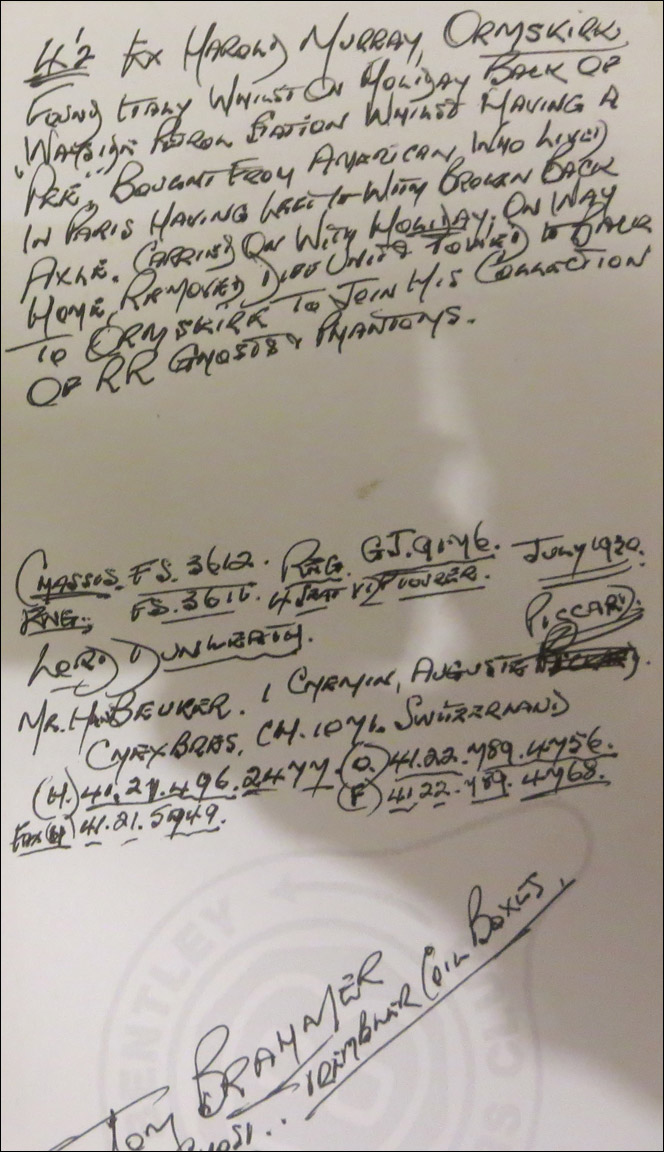 4½ Ex Harold Murray, Ormskirk
Found Italy Whilst On Holiday Back Of
"Wayside Petrol Station Whilst Having A
Pee", Bought From American Who Lived
In Paris Having Left It With Broken Back
Axle. Carried On With Holiday, On Way
Home, Removed Diff Unit & Towed It Back
To Ormskirk To Join His Collection
Of RR Ghosts & Phantoms.
Chassis. FS. 3612. Reg. GJ. 9176. July 1930.
Eng: FS. 3611. 4 Seat Tourer.
Lord Dunleath. Piccard.
Mr. H. Beurer. 1 Chemin, Auguste
Chexbres, CH. 1071. Switzerland
(H.) 41.21.496.2477. (O.) 41.22.789.4756.
(F) 41.22.789.4768.
Fax (H) 41.21.5949.
Tom Brammer
Ghost.. Trembler Coil Boxes.
BENTLEY